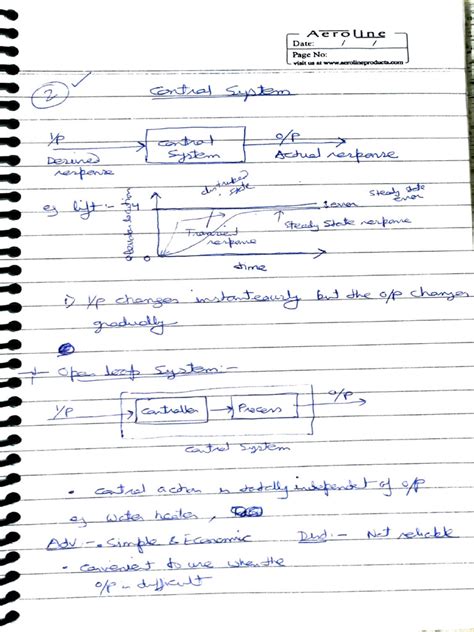 AeroLine
Date: / /
Page No:
visit us at www.aerolineproducts.com
2
Control System
I/P
Control System
O/P
Desired response
Actual response
eg lift:-
error
Steady State error
Steady State response
Transient response
0
time
i) I/P changes instantaneously but the O/P changes
gradually
Open loop System:-
I/P
Controller
Process
O/P
Control System
• Control action is totally independent of O/P
eg water heater,
Adv:- • Simple & Economic
Not reliable
• Convenient to use when the
O/P - difficult